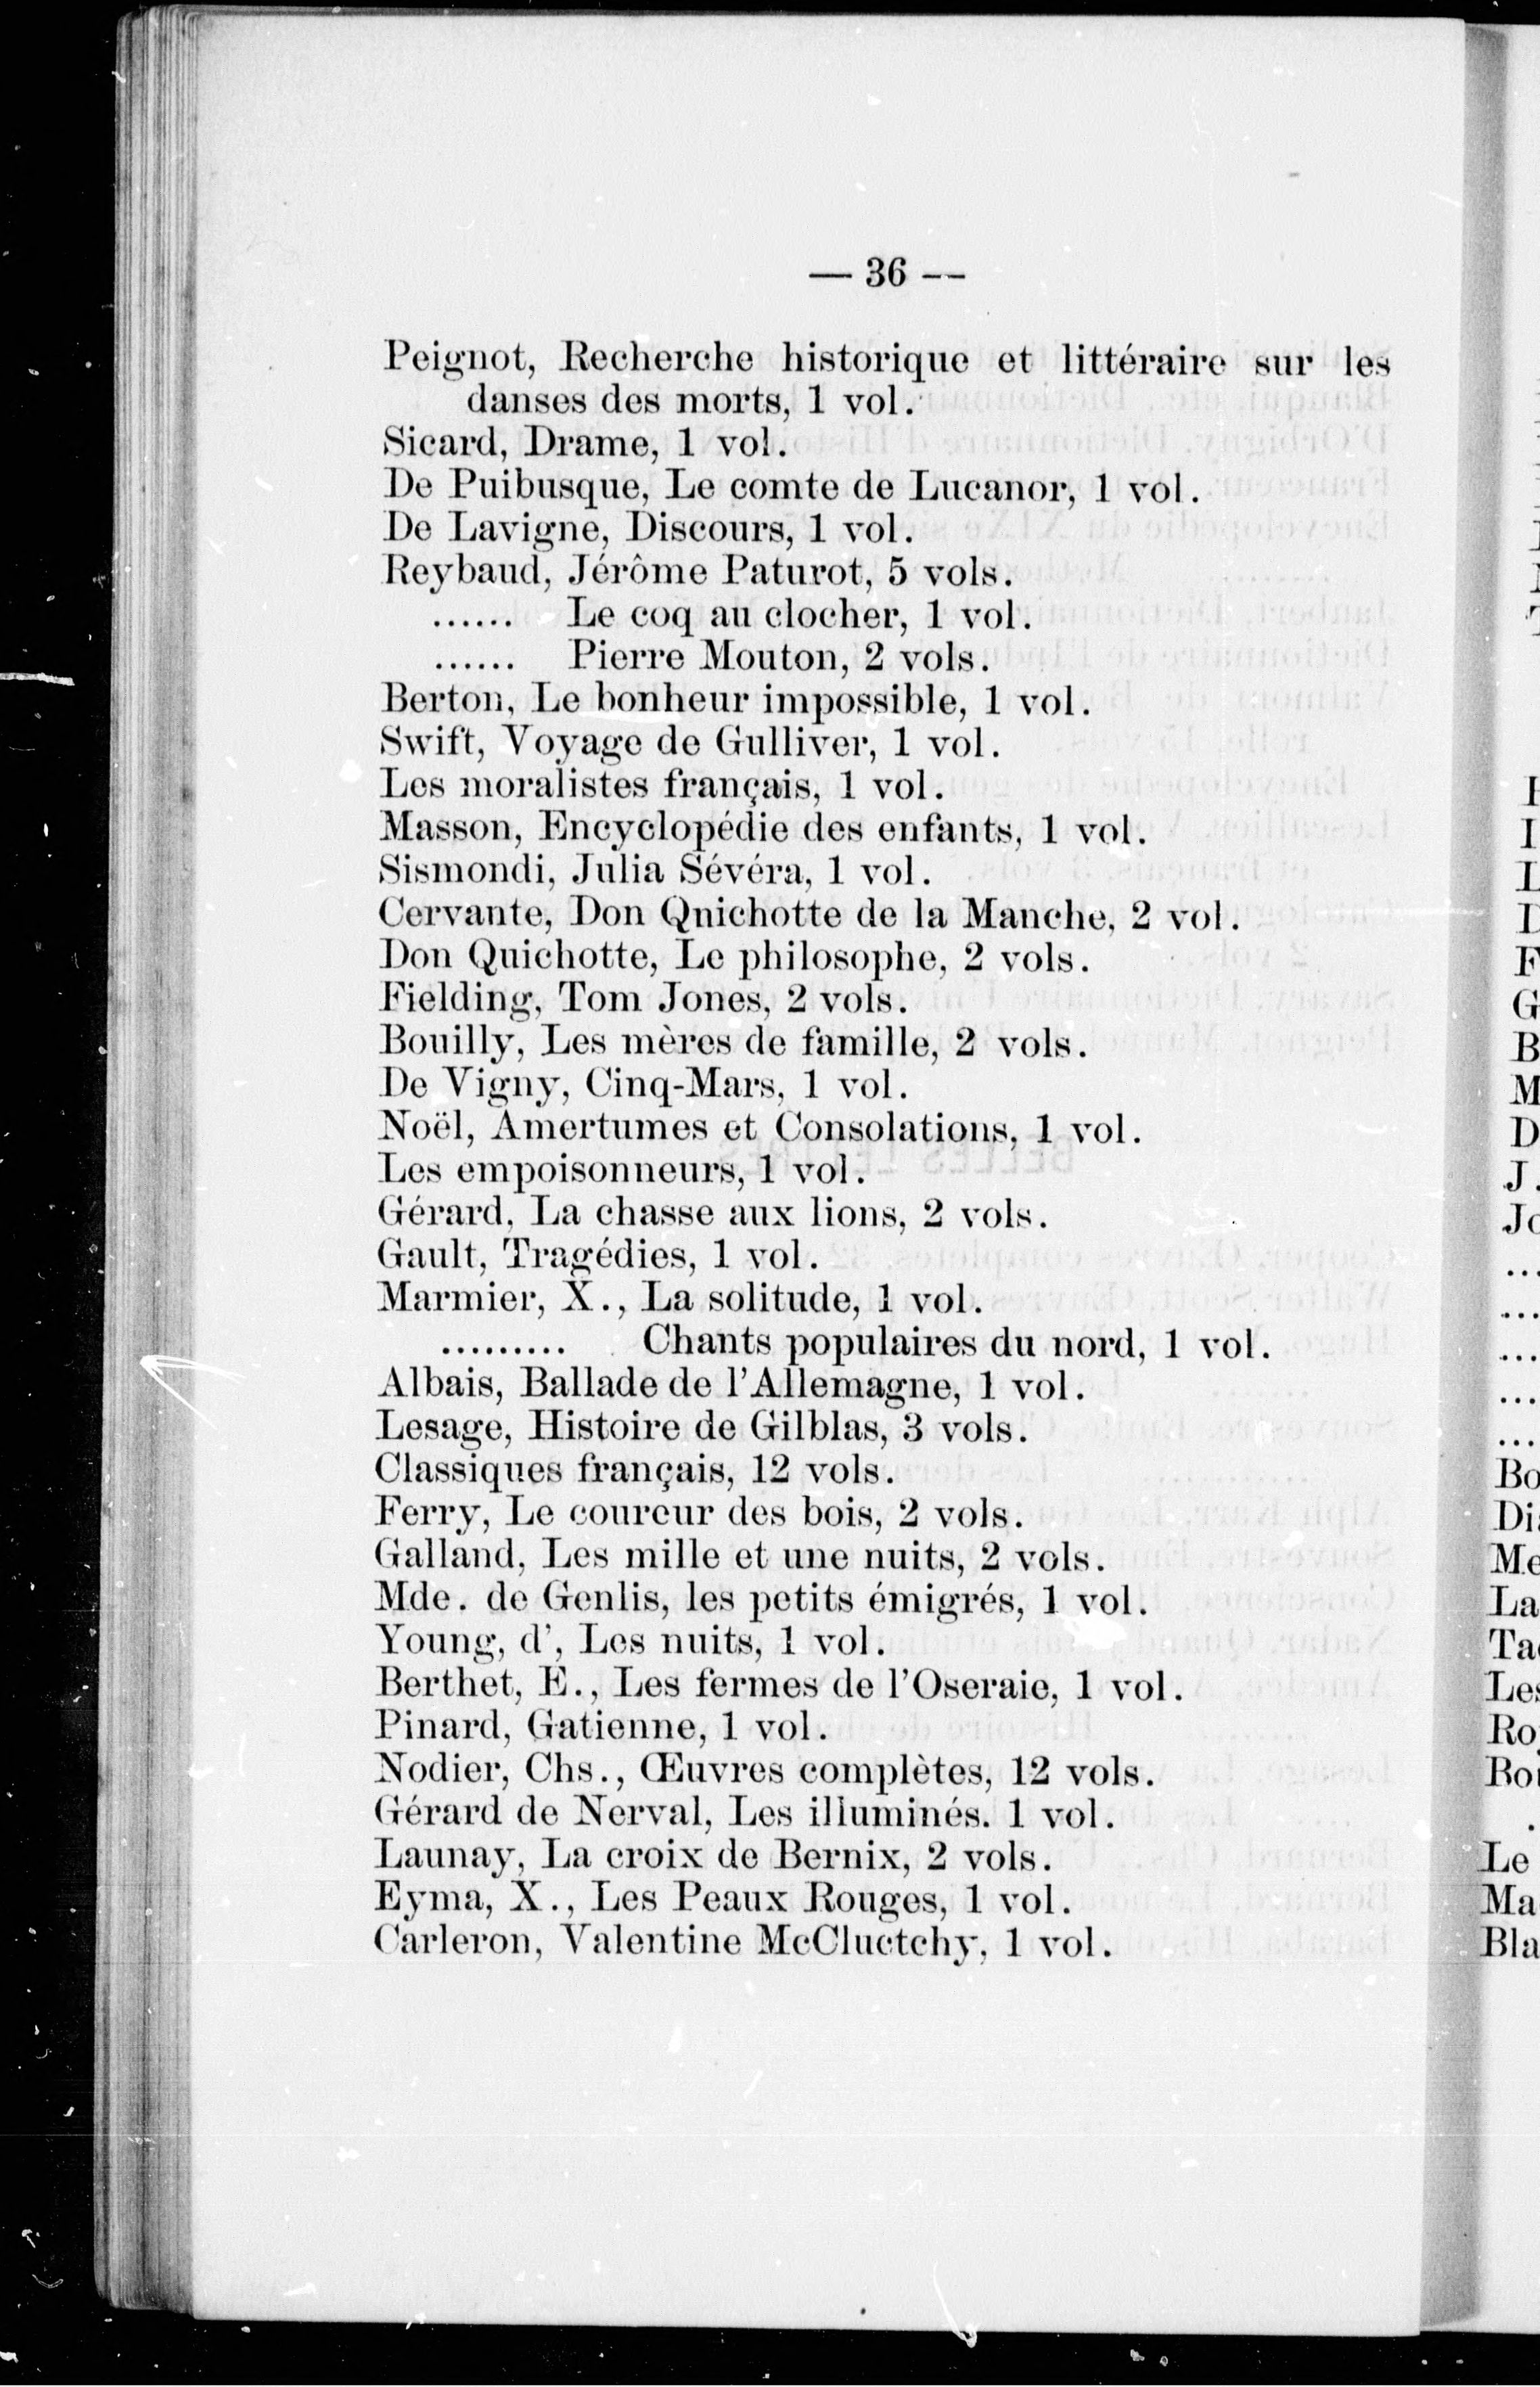 — 36 —
Peignot, Recherche historique et littéraire sur les
danses des morts, 1 vol.
Sicard, Drame, 1 vol.
De Puibusque, Le comte de Lucanor, 1 vol.
De Lavigne, Discours, 1 vol.
Reybaud, Jérôme Paturot, 5 vols.
...... Le coq au clocher, 1 vol.
...... Pierre Mouton, 2 vols.
Berton, Le bonheur impossible, 1 vol.
Swift, Voyage de Gulliver, 1 vol.
Les moralistes français, 1 vol.
Masson, Encyclopédie des enfants, 1 vol.
Sismondi, Julia Sévéra, 1 vol.
Cervante, Don Qnichotte de la Manche, 2 vol.
Don Quichotte, Le philosophe, 2 vols.
Fielding, Tom Jones, 2 vols.
Bouilly, Les mères de famille, 2 vols.
De Vigny, Cinq-Mars, 1 vol.
Noël, Amertumes et Consolations, 1 vol.
Les empoisonneurs, 1 vol.
Gérard, La chasse aux lions, 2 vols.
Gault, Tragédies, 1 vol.
Marmier, X., La solitude, 1 vol.
......... Chants populaires du nord, 1 vol.
Albais, Ballade de l'Allemagne, 1 vol.
Lesage, Histoire de Gilblas, 3 vols.
Classiques français, 12 vols.
Ferry, Le coureur des bois, 2 vols.
Galland, Les mille et une nuits, 2 vols.
Mde. de Genlis, les petits émigrés, 1 vol.
Young, d', Les nuits, 1 vol.
Berthet, E., Les fermes de l'Oseraie, 1 vol.
Pinard, Gatienne, 1 vol.
Nodier, Chs., Œuvres complètes, 12 vols.
Gérard de Nerval, Les illuminés. 1 vol.
Launay, La croix de Bernix, 2 vols.
Eyma, X., Les Peaux Rouges, 1 vol.
Carleron, Valentine McCluctchy, 1 vol.